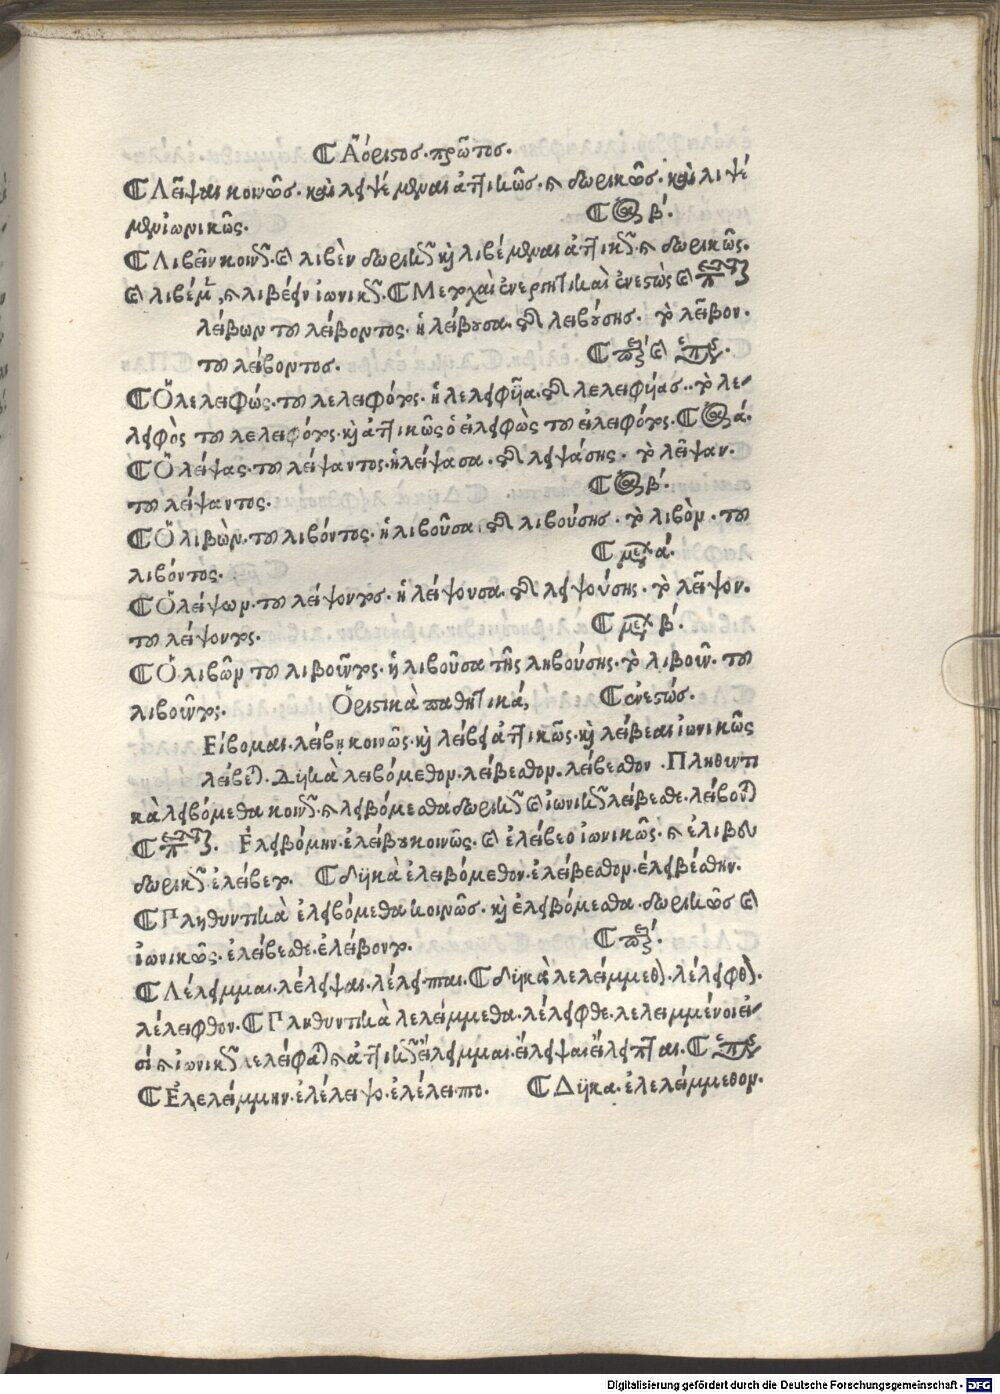 Ἀόριστος. πρῶτος.
Λεῖψαι κοινῶς. καὶ λειψέμεναι ἀττικῶς. καὶ δωρικῶς. καὶ λιψέ
μεν ἰωνικῶς. β´.
Λιβεῖν κοινῶς. καὶ λιβὲν δωρικῶς καὶ λιβέμεναι ἀττικῶς καὶ δωρικῶς.
καὶ λιβέμεν, καὶ λιβέειν ἰωνικῶς. Μετοχαὶ ἐνεργητικαὶ ἐνεστὼς καὶ
λείβων τοῦ λείβοντος. ἡ λείβουσα. τῆς λειβούσης. τὸ λεῖβον.
τοῦ λείβοντος.
Ὁ λελειφώς. τοῦ λελειφότος. ἡ λελειφῦια. τῆς λελειφυίας. τὸ λε
λειφὸς τοῦ λελειφότος. καὶ ἀττικῶς ὁ εἰλειφὼς τοῦ εἰλειφότος. ά.
Ὁ λείψας. τοῦ λείψαντος. ἡ λείψασα. τῆς λειψάσης. τὸ λεῖψαν.
τοῦ λείψαντος. β´.
Ὁ λιβὼν. τοῦ λιβόντος. ἡ λιβοῦσα. τῆς λιβούσης. τὸ λιβὸν. τοῦ
λιβόντος. ά.
Ὁ λείψων. τοῦ λείψοντος. ἡ λείψουσα. τῆς λειψούσης. τὸ λεῖψον.
τοῦ λείψοντος. β´.
Ὁ λιβῶν τοῦ λιβοῦντος. ἡ λιβοῦσα τῆς ληβούσης. τὸ λιβοῦν. τοῦ
λιβοῦντος. Ὁριστικὰ παθητικά, ἐνεστώς.
Είβομαι. λείβη κοινῶς. καὶ λείβει ἀττικῶς. καὶ λείβεαι ἰωνικῶς
λείβεται. Δυϊκὰ λειβόμεθον. λείβεσθον. λείβεσθον. Πληθυντι
κὰ λειβόμεθα κοινῶς. καὶ λειβόμεσθα δωρικῶς καὶ ἰωνικῶς λείβεσθε. λείβονται
Ἐλειβόμην. ἐλείβου κοινῶς. καὶ ἐλείβεο ἰωνικῶς. καὶ ἐλιβευ
δωρικῶς ἐλείβετο. δυϊκὰ ἐλειβόμεθον. ἐλείβεσθον. ἐλειβέσθην.
Πληθυντικὰ ἐλειβόμεθα κοινῶς. καὶ ἐλειβόμεσθα. δωρικῶς καὶ
ἰωνικῶς. ἐλείβεσθε. ἐλείβοντο.
Λέλειμμαι. λέλειψαι. λέλειπται. δυϊκὰ λελείμμεθον. λέλειφθον.
λέλειφθον. Πληθυντικὰ λελείμμεθα. λέλειφθε. λελειμμένοι εἰ
σὶ καὶ ἰωνικῶς λελείφαται καὶ ἀττικῶς εἴλειμμαι. εἴλειψαι εἴλειπται.
Ἐλελείμμην. ἐλέλειψο. ἐλέλειπτο. Δυϊκα. ἐλελείμμεθον.